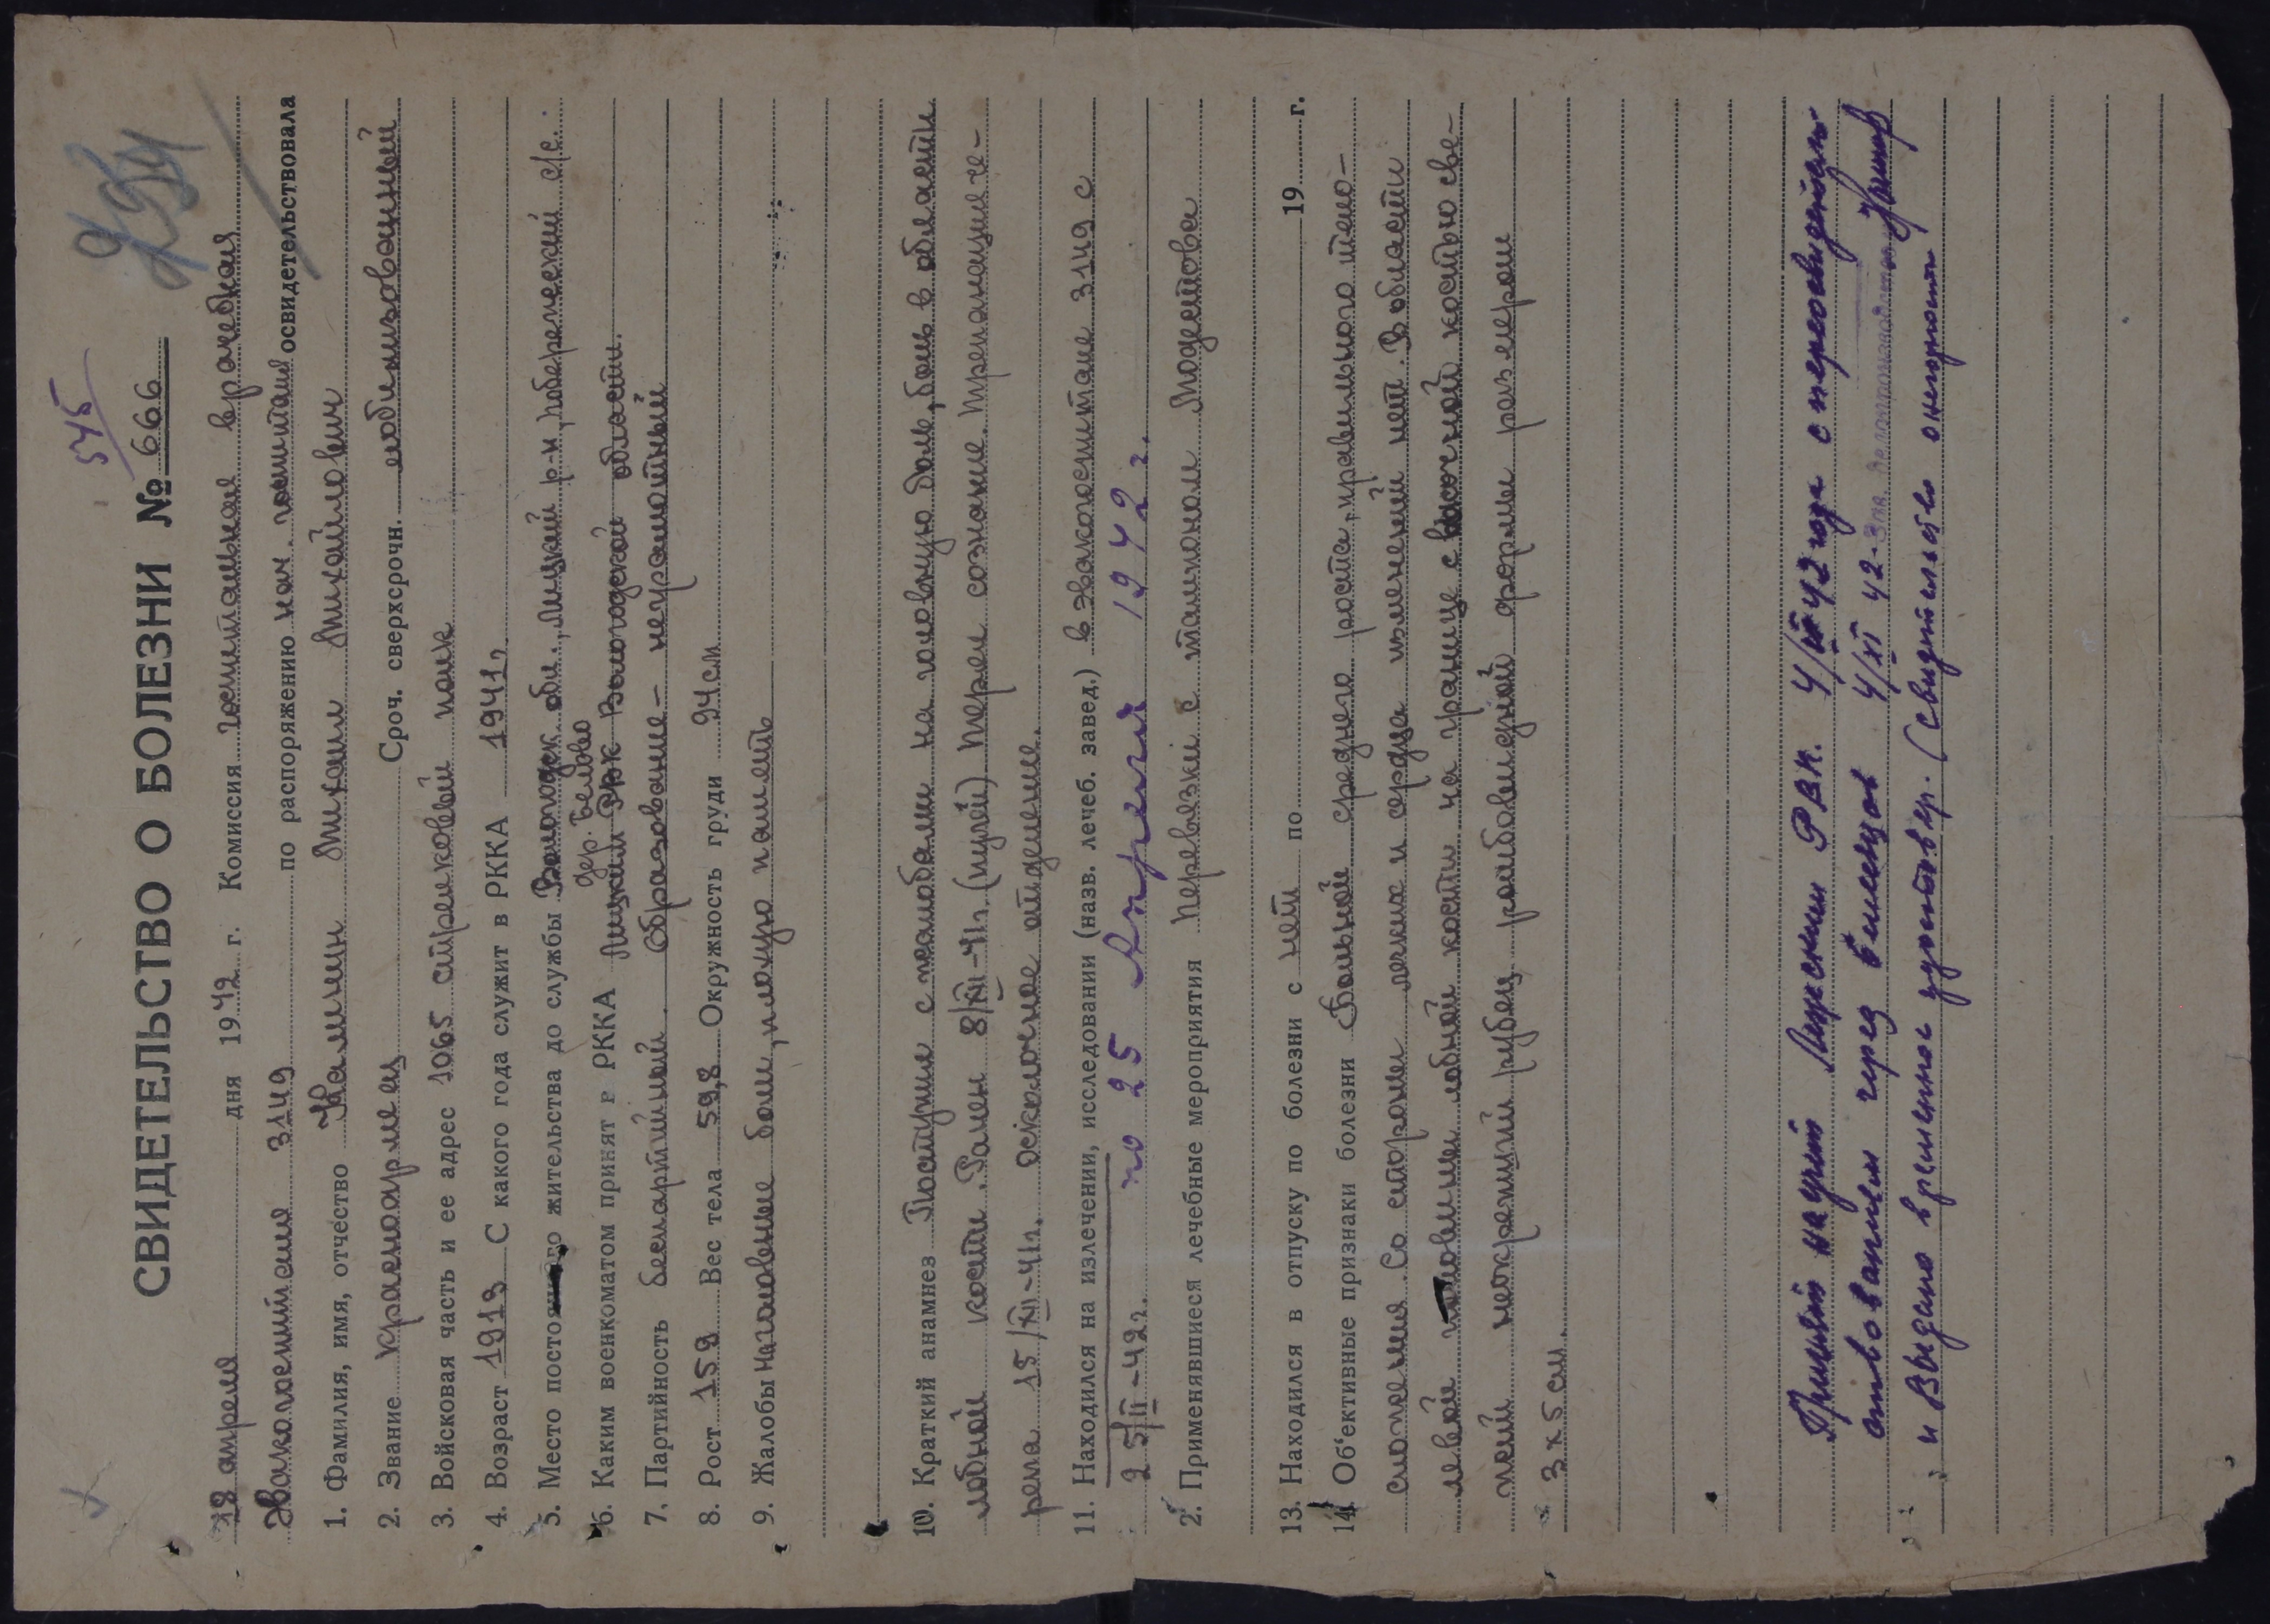 545
СВИДЕТЕЛЬСТВО О БОЛЕЗНИ № 666
18 апреля дня 1942 г. Комиссия госпитальная врачебная
Эвакогоспиталя 3119 по распоряжению нач. госпиталя освидетельствовала
1. Фамилия, имя, отчество Калинин Михаил Михайлович
2. Звание красноармеец Сроч. сверхсрочн. мобилизованный
3. Войсковая часть и ее адрес 1065 стрелковый полк
4. Возраст 1913 С какого года служит в РККА 1941г.
5. Место постоянного жительства до службы Вологодск. обл., Лицкий р-н, Побережский с/с.
дер. Белово
6. Каким военкоматом принят в РККА Лицким РВК Вологодской области.
7. Партийность беспартийный. Образование – неграмотный
8. Рост 159 Вес тела 59,8 Окружность груди 94см
9. Жалобы на головные боли, плохую память
10. Краткий анамнез Поступил с жалобами на головную боль, боль в области
лобной кости. Ранен 8/XII-41г. (пулей) Терял сознание. Трепанация че-
репа 15/XII-41г. Осколочное отделение.
11. Находился на излечении, исследовании (назв. лечеб. завед.) в эвакогоспитале 3119 с
25/II-42г. по 25 Апреля 1942г.
2. Применявшиеся лечебные мероприятия перевязки с тампоном Модестова
13. Находился в отпуску по болезни с нет по 19 г.
14. Об'ективные признаки болезни Больной среднего роста, правильного тело-
сложения. Со стороны легких и сердца изменений нет. В области
левой половины лобной кости на границе с височной костью све-
жий неокрепший рубец ромбовидной формы размером
3х5 см.
Принят на учет РВК. 4/XI 42 года с переосвидетельст-
вованием через 6 месяцев 4/XI 42.
и Выдано временное удостовер. (свидетельство